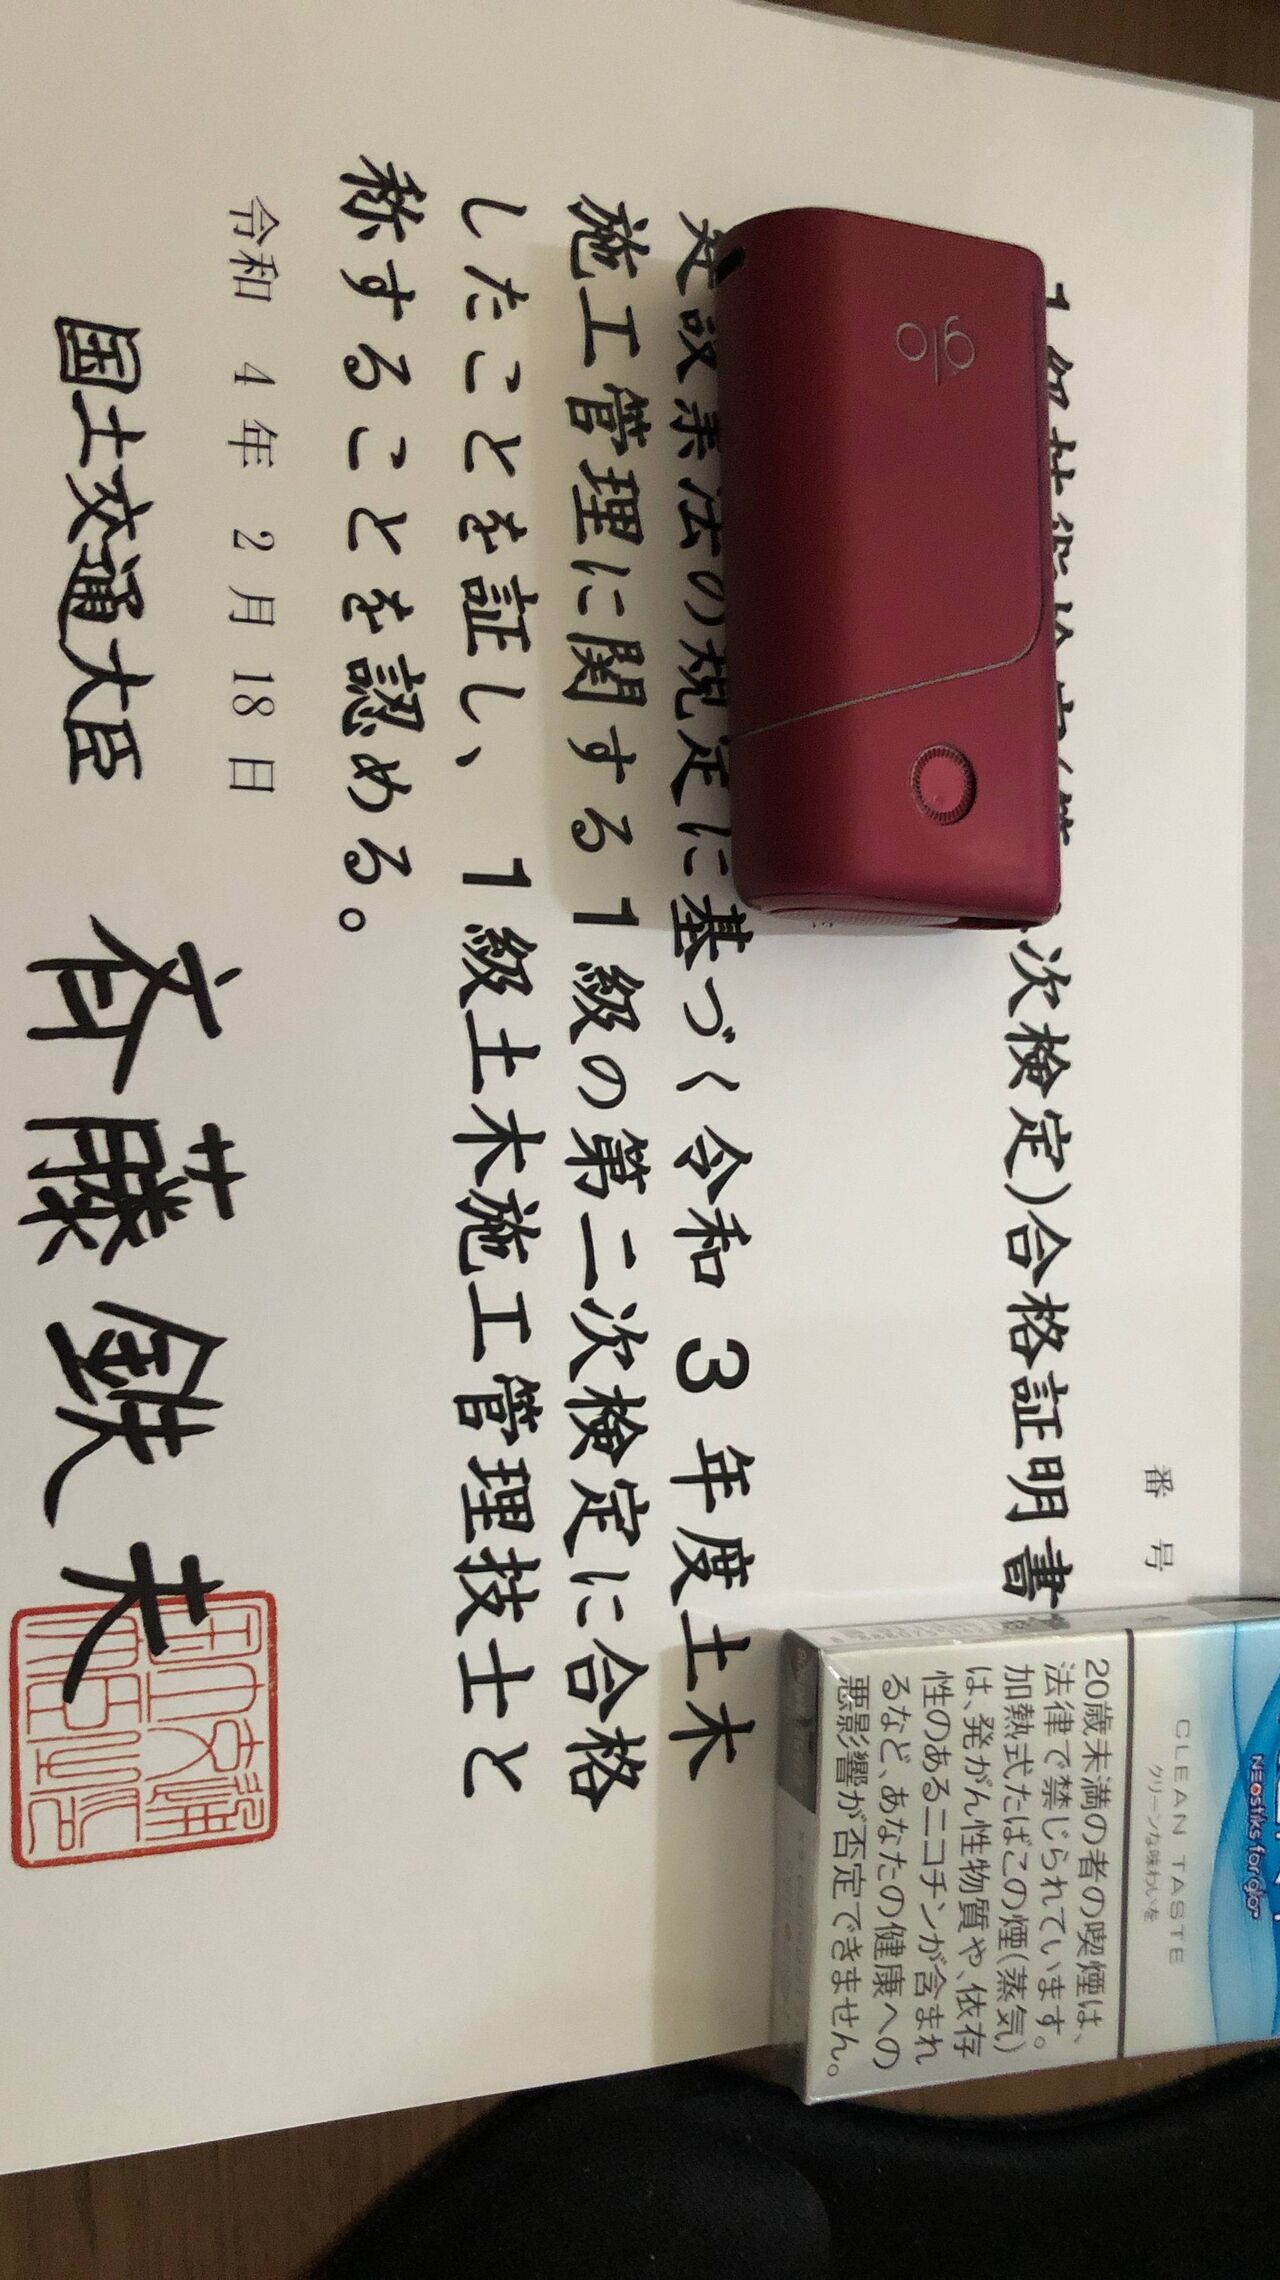 番 号
次検定)合格証明書
法の規定に基づく令和 3 年度土木
施工管理に関する1級の第二次検定に合格
したことを証し、1級土木施工管理技士と
称することを認める。
令和 4 年 2 月 18 日
国土交通大臣 斉藤 鉄夫
glo
NEOstiks for glo
CLEAN TASTE
クリーンな味わいを
20歳未満の者の喫煙は、
法律で禁じられています。
加熱式たばこの煙(蒸気)
は、発がん性物質や、依存
性のあるニコチンが含まれ
るなど、あなたの健康への
悪影響が否定できません。